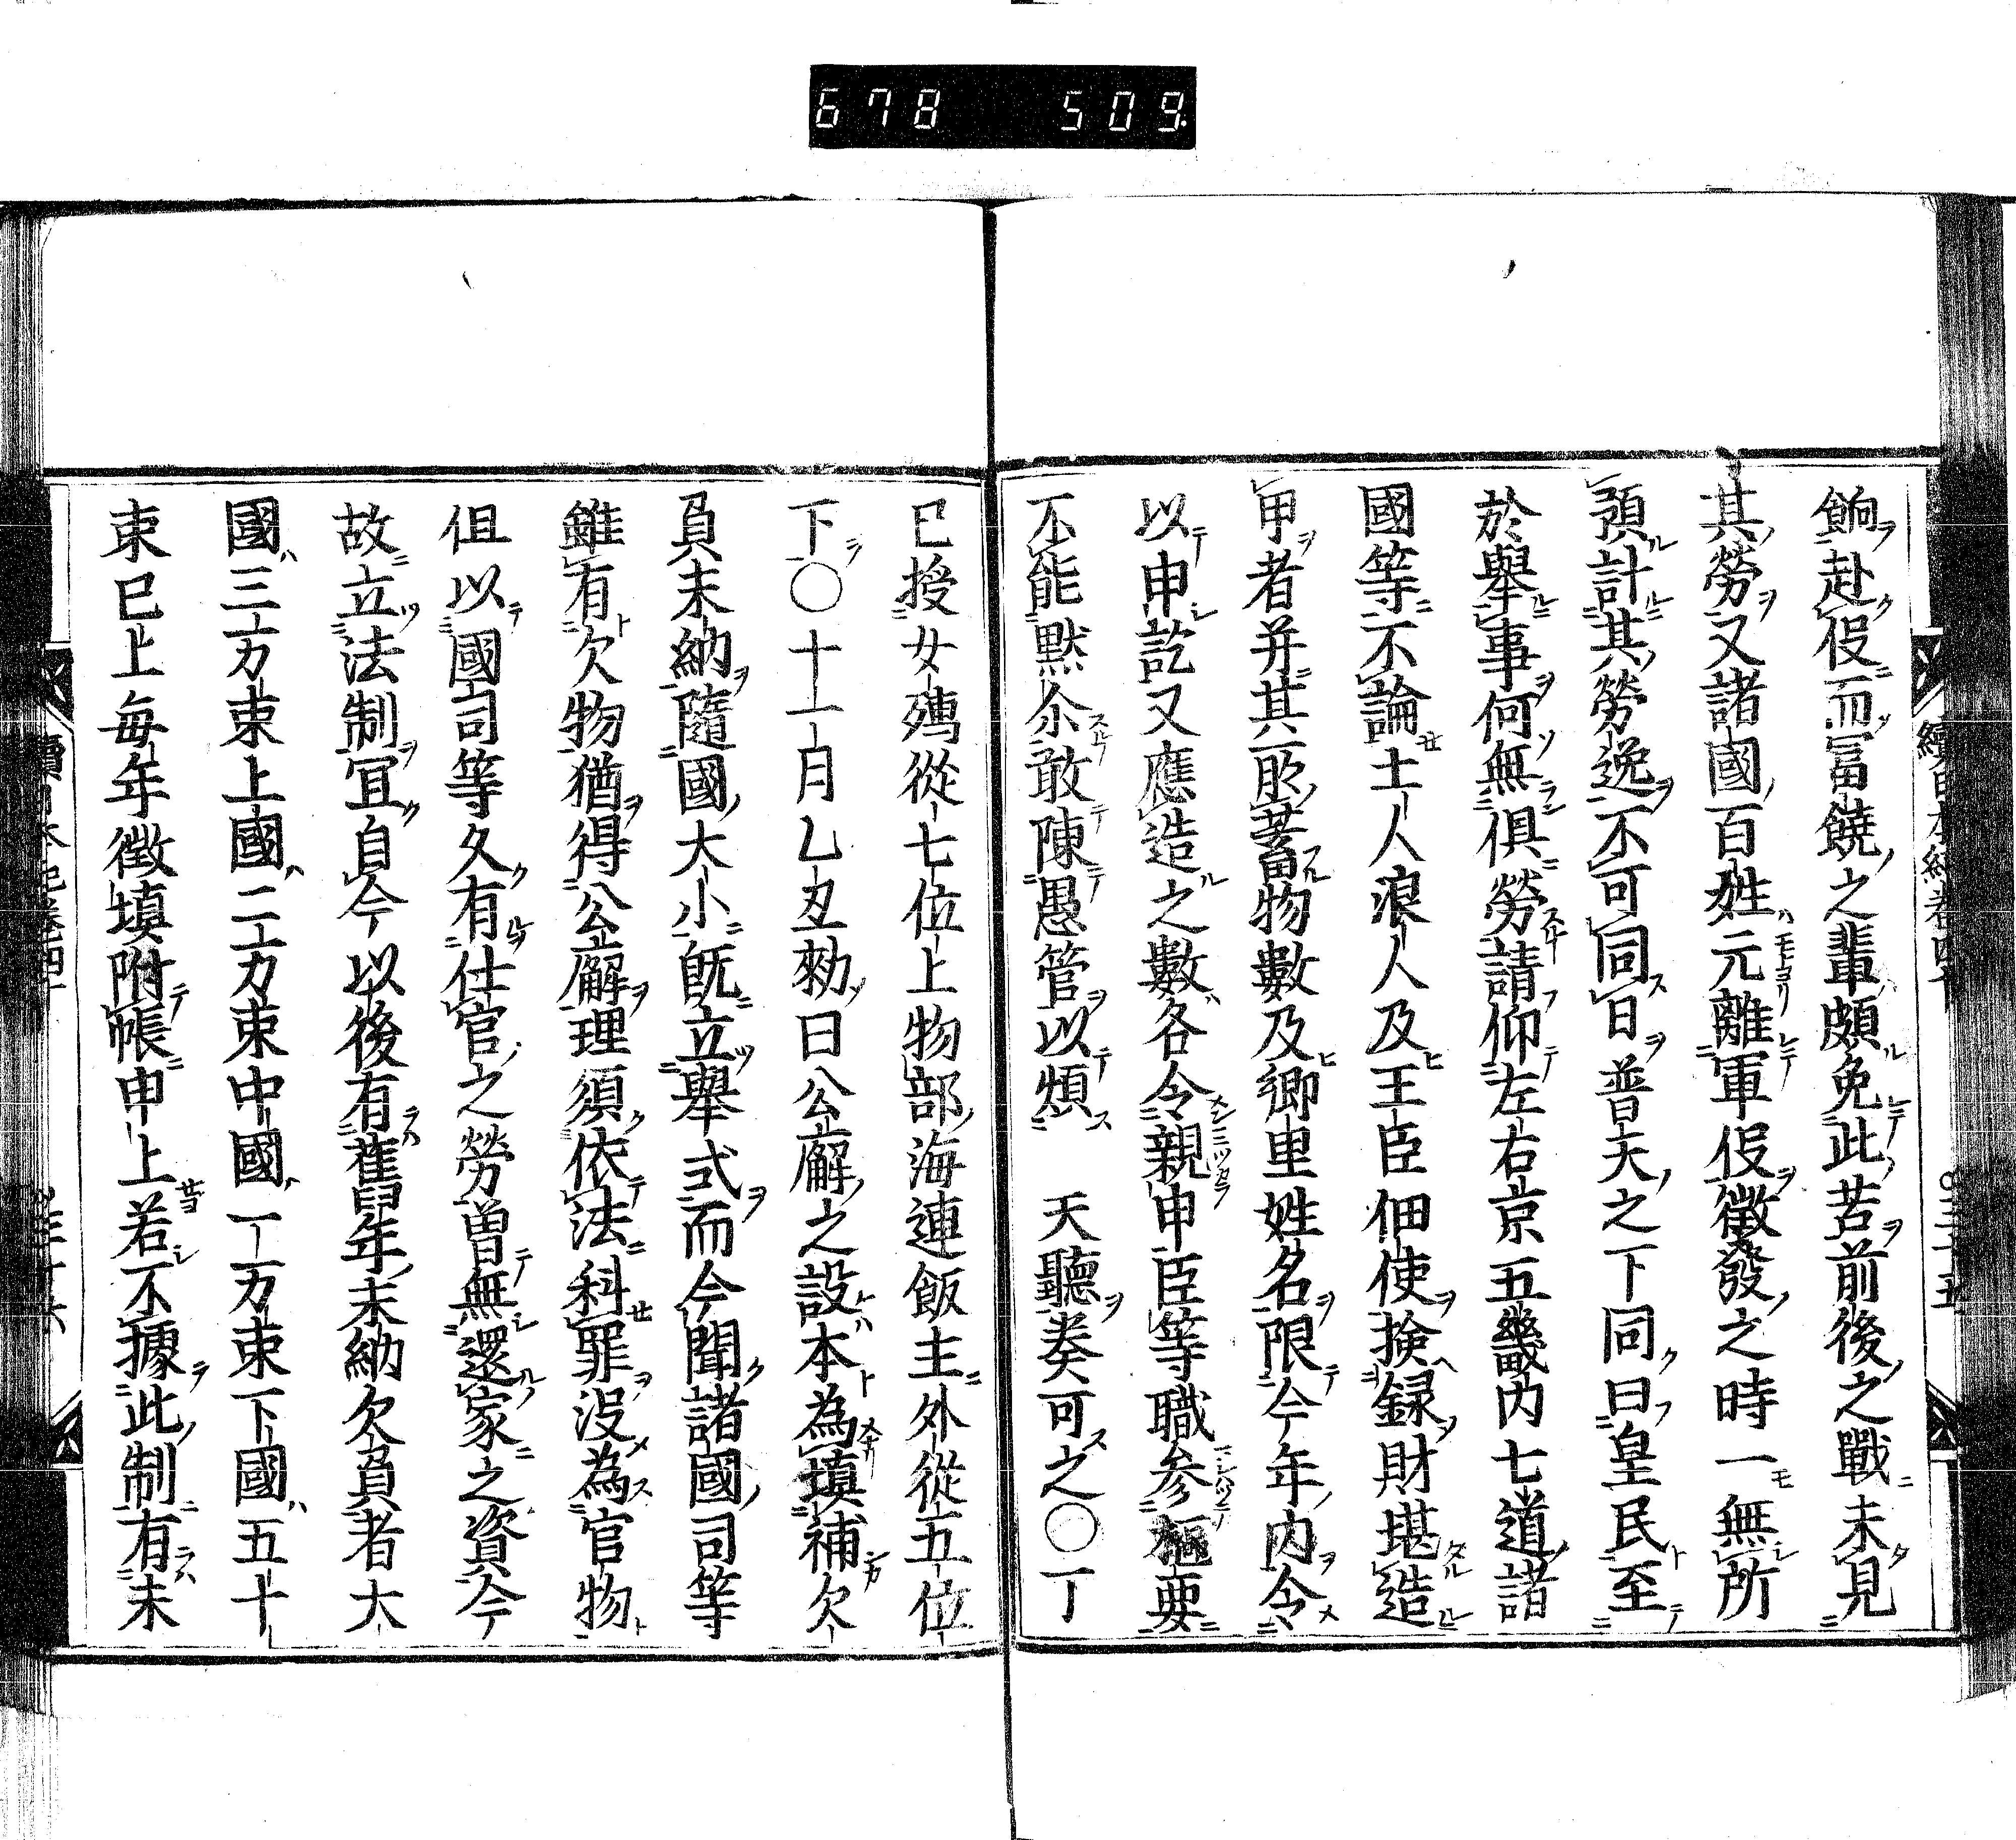 678 509
餉赴役而冨饒之輩頗免此苦前後之戰未見
其勞又諸國百姓元離軍役徴發之時一無所
預計其勞逸不可同日普天之下同曰皇民至
於舉事何無倶勞請仰左右京五畿内七道諸
國等不論土人浪人及王臣佃使撿録財堪造
甲者并其所蓄物數及郷里姓名限今年内令
以申訖又應造之數各令親申臣等職参樞要
不能默尒敢陳愚管以煩 天聽奏可之〇丁
巳授女孺從七位上物部海連飯主外從五位
下〇十一月乙丑勅曰公廨之設本為填補欠
負未納隨國大小既立舉式而今聞諸國司等
雖有欠物猶得公廨理須依法科罪没為官物
但以國司等久有仕官之勞曽無還家之資今
故立法制宜自今以後有舊年未納欠負者大
國三万束上國二万束中國一万束下國五十
束已上毎年徴填附帳申上若不據此制有未